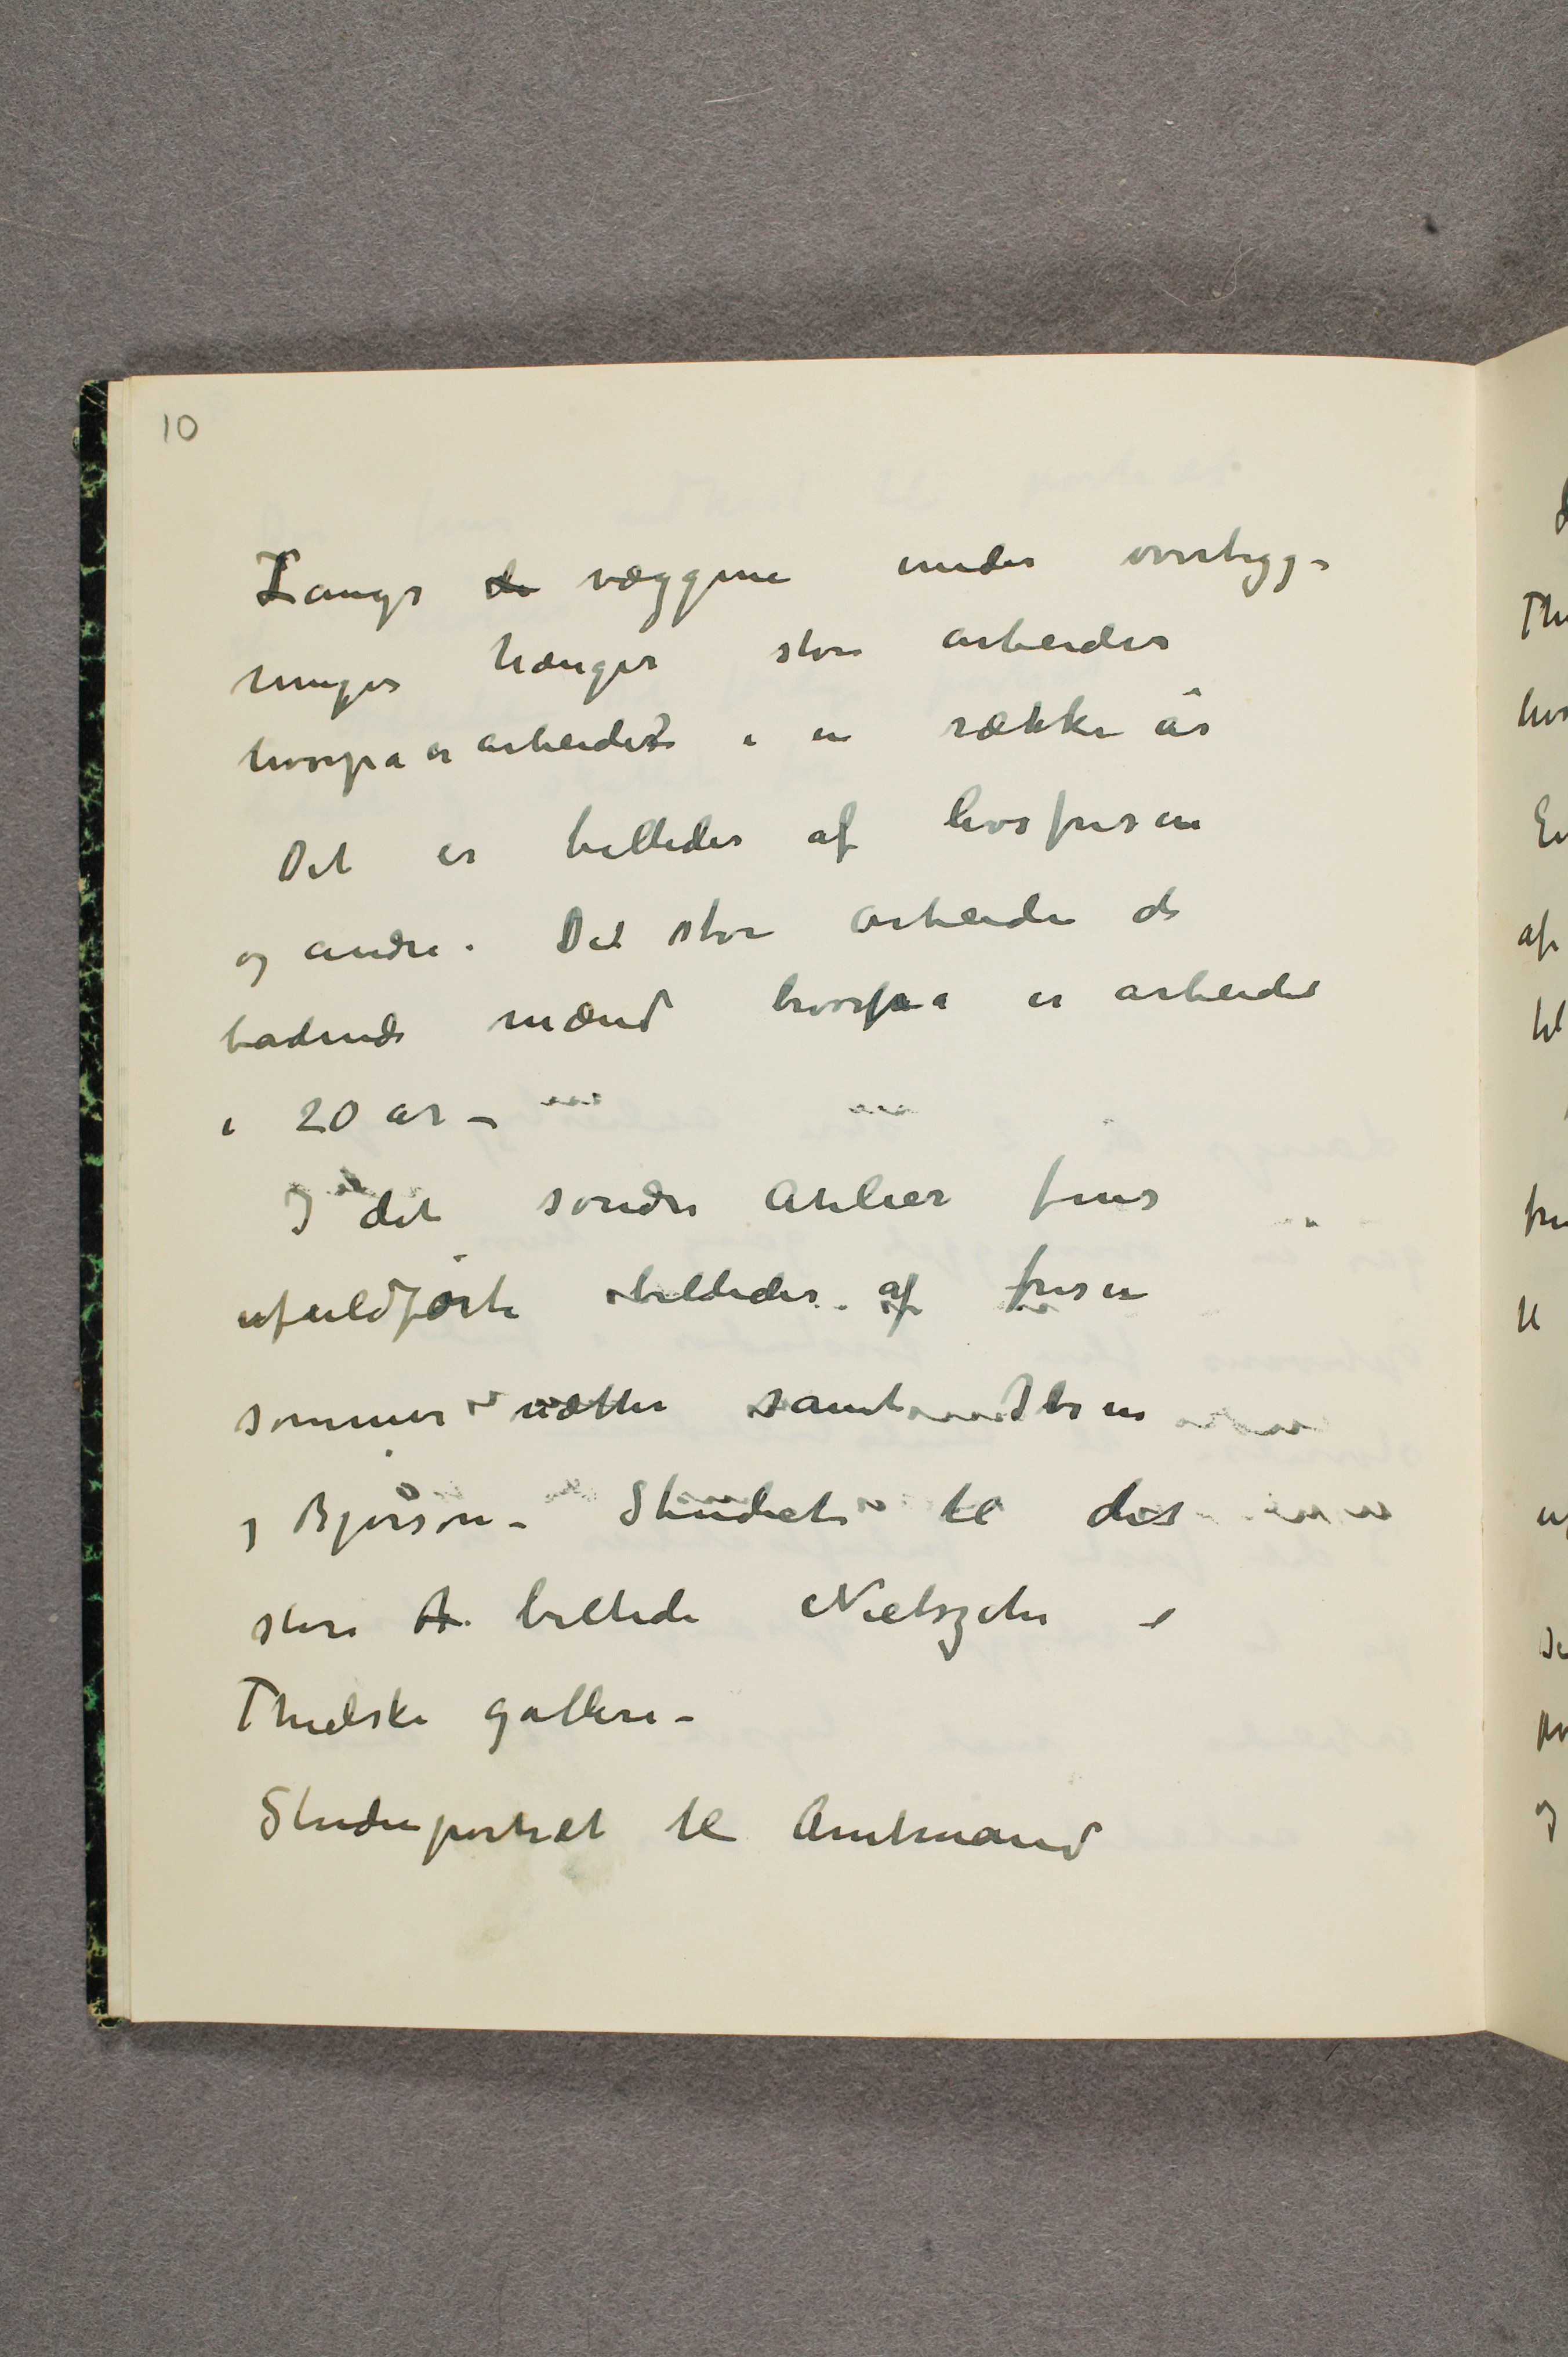 10
Langs de væggene under overbygg-
ninger hænger store arbeider
hvorpa er arbeidet i en række år
Det er billeder af livsfrisen
og andre. Det store arbeide de
badende mænd hvorpaa er arbeidet
i 20 ar –
I det søndre Atelier fins
ufuldførte billeder af frisen
sommernætter samt Ibsen
og Bjørson – Studiet til det
store billede Nietzsche –
Thielske galleri –
Studieportræt til Amtmand